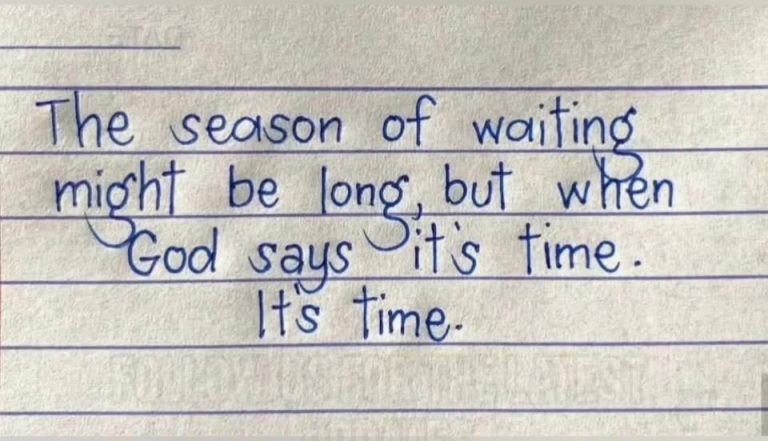 The season of waiting
might be long, but when
God says it's time.
It's time.